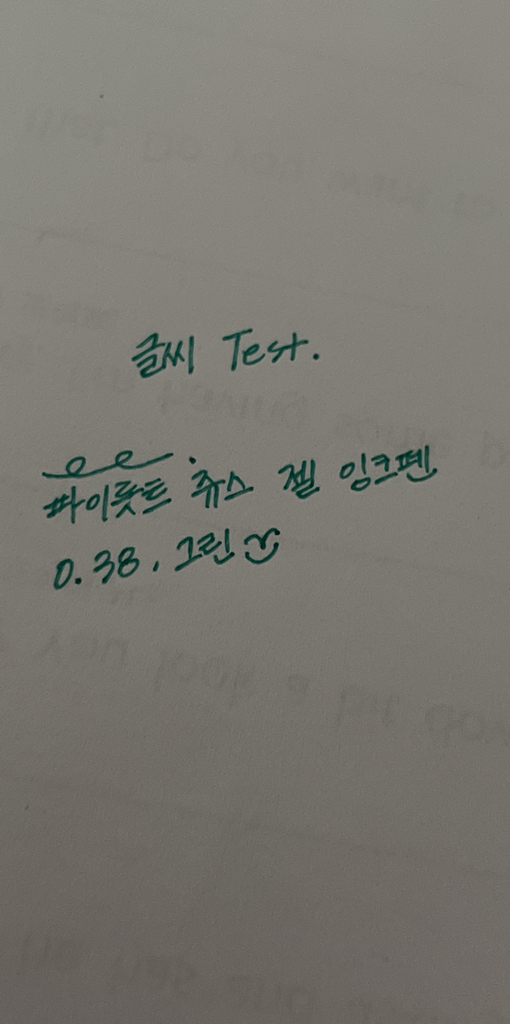 글씨 Test.
파이롯트 쥬스 젤 잉크펜
0.38, 그린